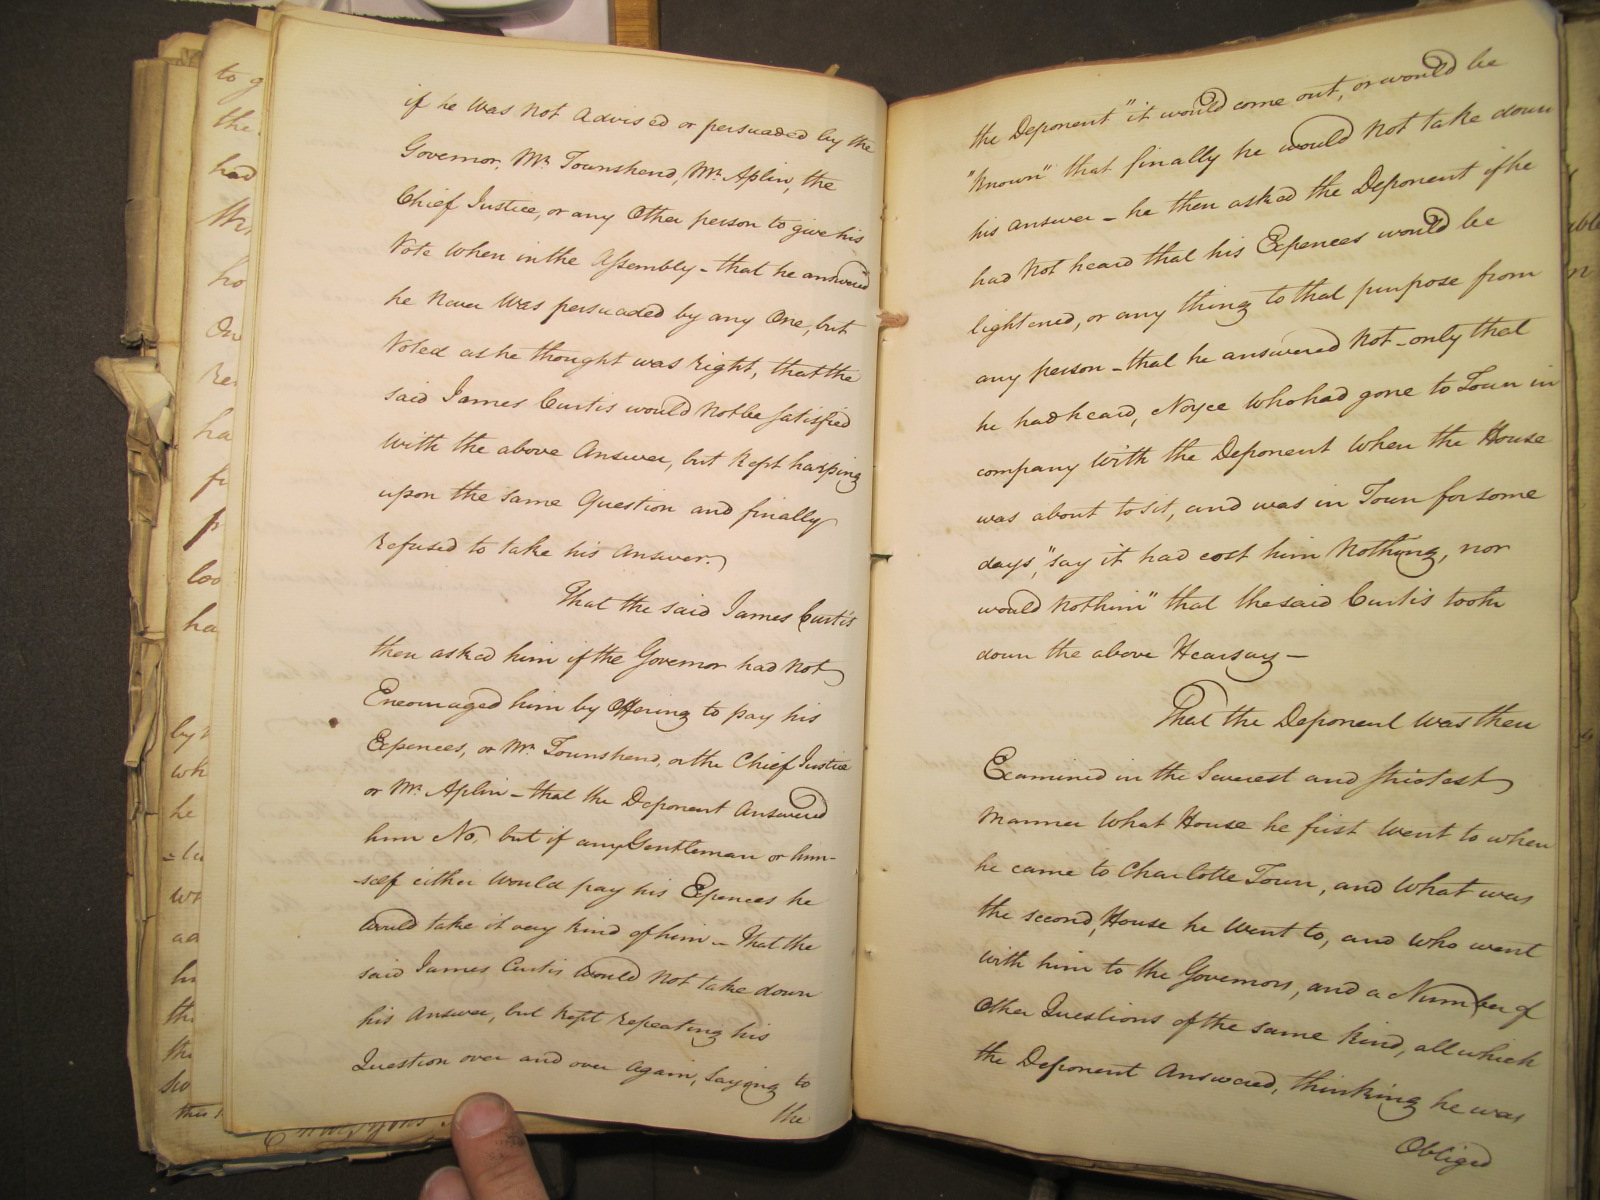 if he was not advised or persuaded by the
Governor, Mr. Townshend, Mr. Aplin, the
Chief Justice, or any Other person to give his
Vote when in the Assembly - that he answered
he never was persuaded by any One, but
Voted as he thought was right, that the
said James Curtis would not be satisfied
with the above Answer, but kept harping
upon the same Question and finally
refused to take his answer.
That the said James Curtis
then asked him if the Governor had not
Encouraged him by Offering to pay his
Expences, or Mr. Townshend, or the Chief Justice
or Mr. Aplin - that the Deponent Answered
him No, but if any Gentleman or him-
-self either would pay his Expences he
would take it very kind of him - That the
said James Curtis would not take down
his Answer, but kept repeating his
Question over and over again, Saying to
the
the Deponent "it would come out, or would be
"known" that finally he would not take down
his answer - he then asked the Deponent if he
had not heard that his Expences would be
lightened, or any thing to that purpose from
any person - that he answered not - only that
he had heard, Noyce who had gone to Town in
company with the Deponent when the House
was about to sit, and was in Town for some
days, "say it had cost him nothing, nor
would nothin" that the said Curtis took
down the above Hearsay -
That the Deponent was then
Examined in the Severest and strictest
manner what House he first went to when
he came to Charlotte Town, and what was
the second House he went to, and who went
with him to the Governors, and a Number of
Other Questions of the same kind, all which
the Deponent Answered, thinking he was
Obliged
to
the
had
ho
ha
loo
ha
by
wh
he